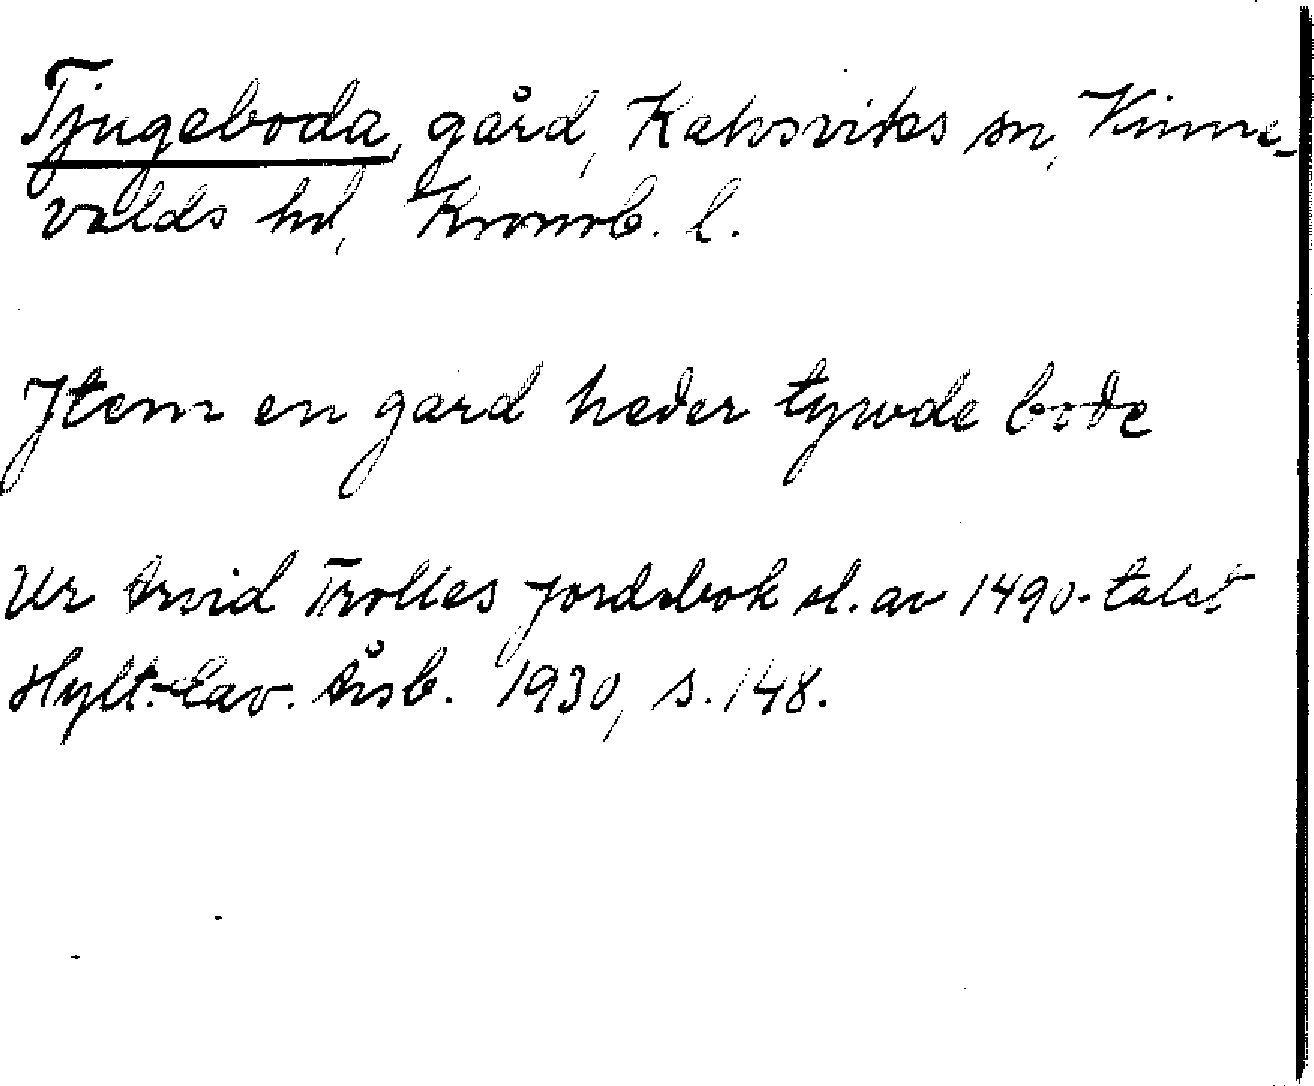 Tjugeboda, gård, Kalvsviks sn, Kinne-
valds hd, Kronob. l.
Jtem en gard heder tywde bode
Ur Arvid Trolles jordebok sl. av 1490-talet
Hylt.-Cav. Årsb. 1930, s. 148.